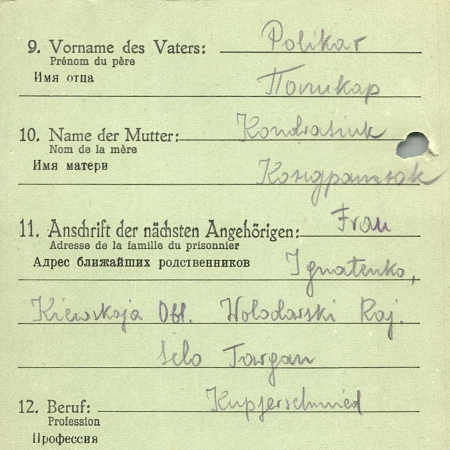 9. Vorname des Vaters: Polikar
Prénom du père
Имя отца Поликар
10. Name der Mutter: Kondratiuk
Nom de la mère
Имя матери Кондратюк
11. Anschrift der nächsten Angehörigen: Frau
Adresse de la famille du prisonnier
Адрес ближайших родственников Ignatenko,
Kiewskaja Obl. Wolodarski Raj.
selo Targan
12. Beruf: Kupferschmied
Profession
Профессия